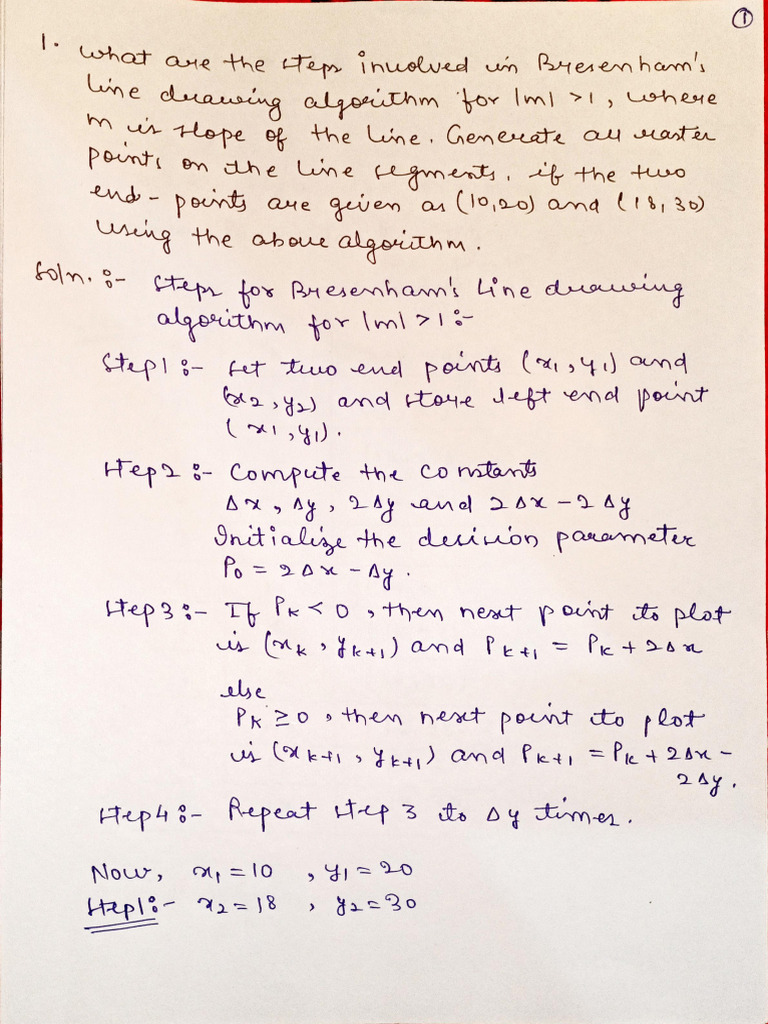 ①
1. What are the steps involved in Bresenham's
line drawing algorithm for |m| >1, where
m is slope of the line. Generate all raster
points on the line segments, if the two
end-points are given as (10,20) and (18,30)
using the above algorithm.
Soln. :- Steps for Bresenham's Line drawing
algorithm for |m| >1 :-
Step1 :- Let two end points (x1, y1) and
(x2, y2) and store left end point
(x1, y1).
Step2 :- Compute the constants
Δx, Δy, 2Δy and 2Δx - 2Δy
Initialize the decision parameter
P0 = 2Δx - Δy.
Step3 :- If Pk < 0, then next point to plot
is (xk, yk+1) and Pk+1 = Pk + 2Δx
else
Pk ≥ 0, then next point to plot
is (xk+1, yk+1) and Pk+1 = Pk + 2Δx -
2Δy.
Step4 :- Repeat step 3 to Δy times.
Now, x1 = 10 , y1 = 20
Step1:- x2 = 18 , y2 = 30